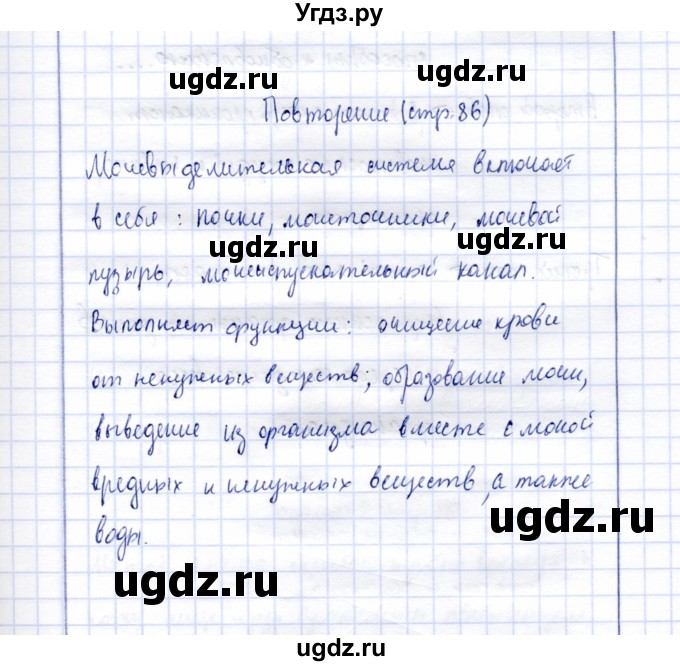 Угдз.ру
ugdz.ru
ugdz.ru
Повторение (стр. 86)
Мочевыделительная система включает
в себя: почки, мочеточники, мочевой
ugdz.ru
ugdz.ru
пузырь, мочеиспускательный канал.
Выполняет функции: очищение крови
от ненужных веществ; образование мочи,
выведение из организма вместе с мочой
вредных и ненужных веществ, а также
ugdz.ru
воды.
ugdz.ru
ugdz.ru